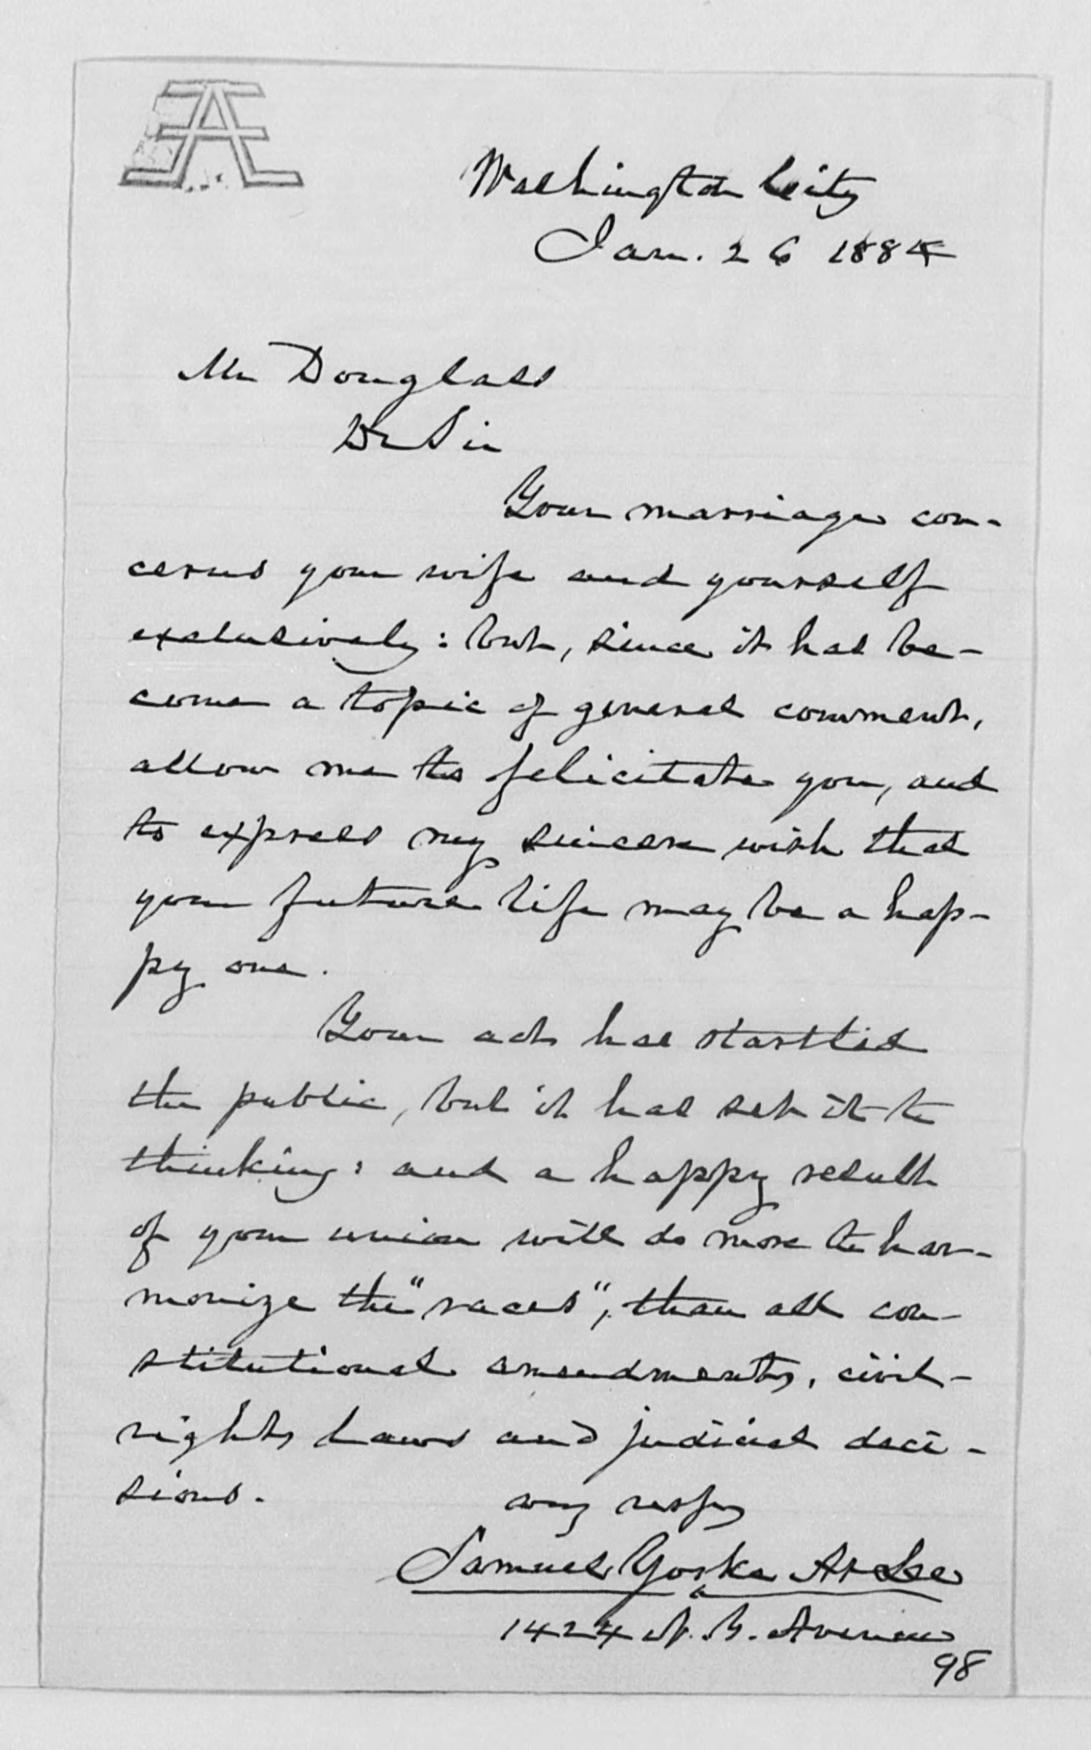 Washington City
Jan. 26 1884
Mr Douglass
Dr Sir
Your marriage con-
cerns your wife and yourself
exclusively: but, since it has be-
come a topic of general comment,
allow me to felicitate you, and
to express my sincere wish that
your future life may be a hap-
py one.
Your act has startled
the public, but it has set it to
thinking: and a happy result
of your union will do more to har-
monize the "races", than all con-
stitutional amendments, civil-
rights laws and judicial deci-
sions.
very respy
Samuel Yorke AtLee
1424 N. Y. Avenue
98